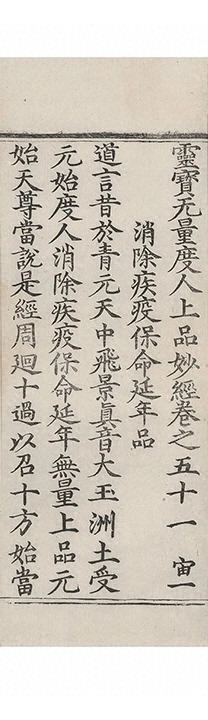 靈寶无量度人上品妙經卷之五十一 宙一
消除疾疫保命延年品
道言昔於青元天中飛景真音大玉洲土受
元始度人消除疾疫保命延年無量上品元
始天尊當說是經周迴十過以召十方始當